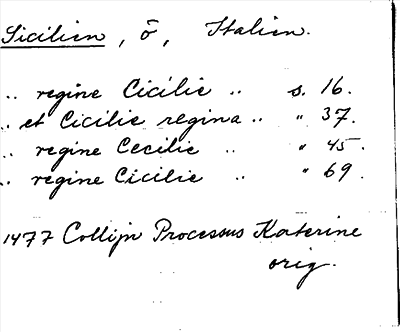 Sicilien, ö, Italien.
.. regine Cicilie .. s. 16.
.. et Cicilie regina .. " 37.
.. regine Cecilie .. " 45.
.. regine Cicilie .. " 69.
1477 Collijn Processus Katerine
orig.